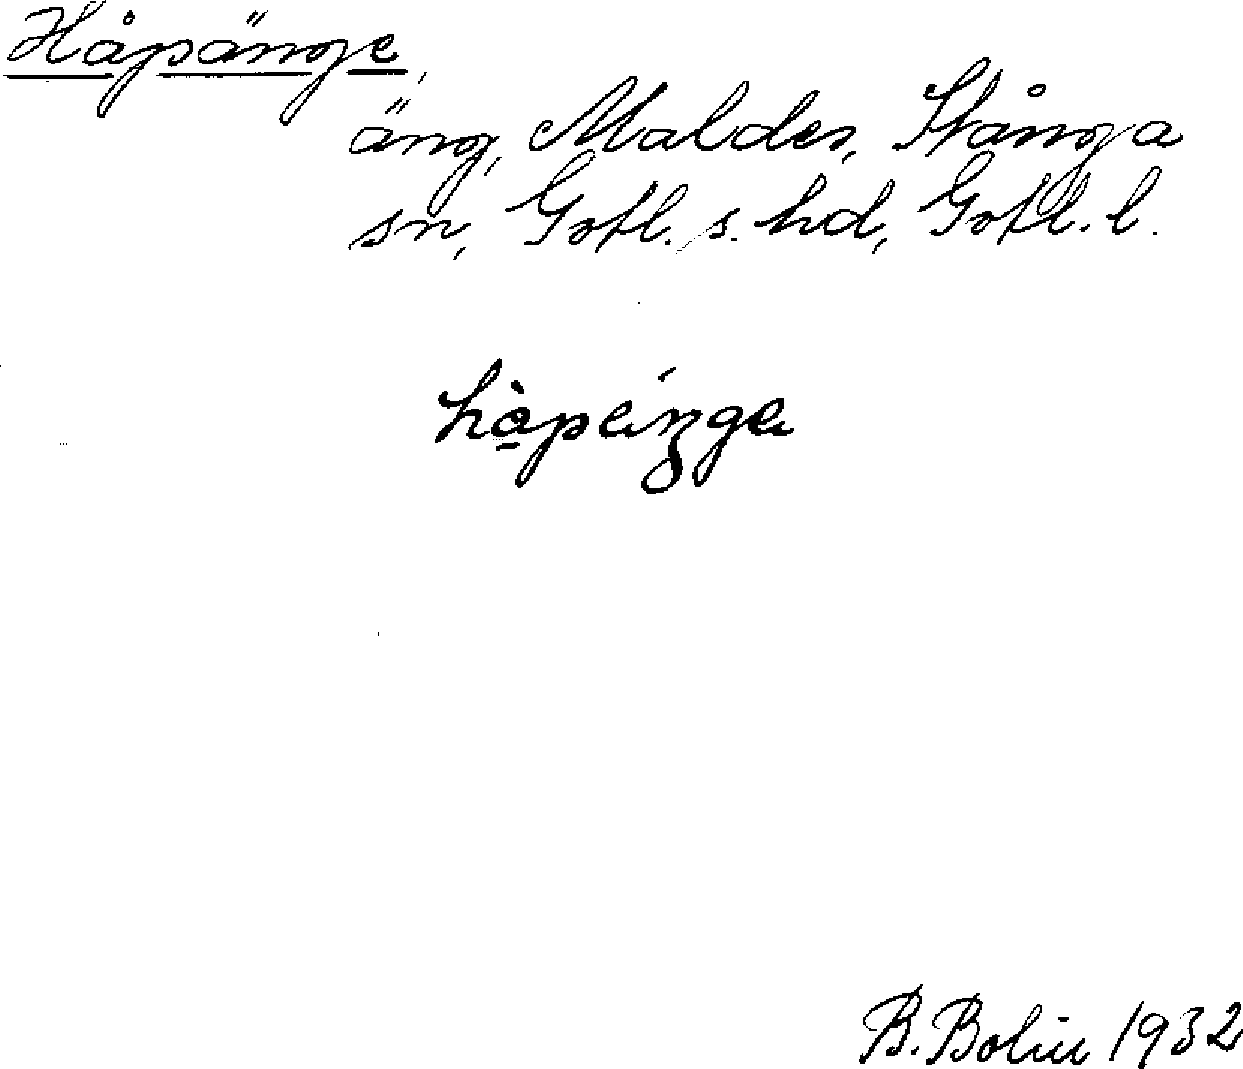 Håpänge,
äng, Maldes, Stånga
sn, Gotl. s. hd, Gotl. l.
hȧpeinge
B. Bolin 1932